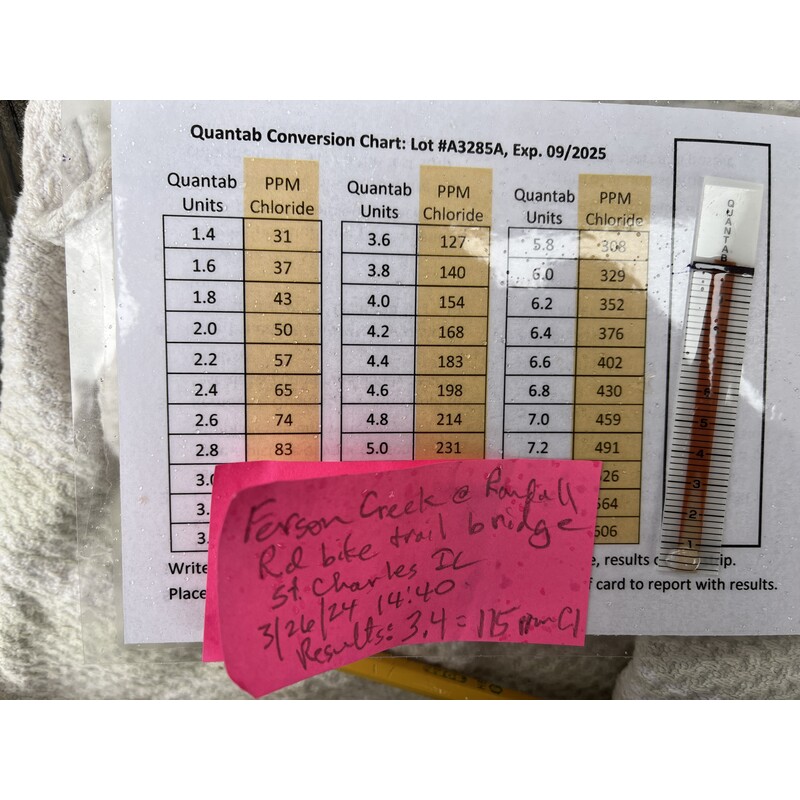 Quantab Conversion Chart: Lot #A3285A, Exp. 09/2025
Quantab Units PPM Chloride Quantab Units PPM Chloride Quantab Units PPM Chloride
1.4 31 3.6 127 5.8 308
1.6 37 3.8 140 6.0 329
1.8 43 4.0 154 6.2 352
2.0 50 4.2 168 6.4 376
2.2 57 4.4 183 6.6 402
2.4 65 4.6 198 6.8 430
2.6 74 4.8 214 7.0 459
2.8 83 5.0 231 7.2 491
3.0 26
3. 64
3. 606
Write e, results o ip.
Place f card to report with results.
QUANTAB
6
5
4
3
2
1
Ferson Creek @ Randall
Rd bike trail bridge
St. Charles IL
3/26/24 14:40
Results: 3.4 = 115 ppm Cl